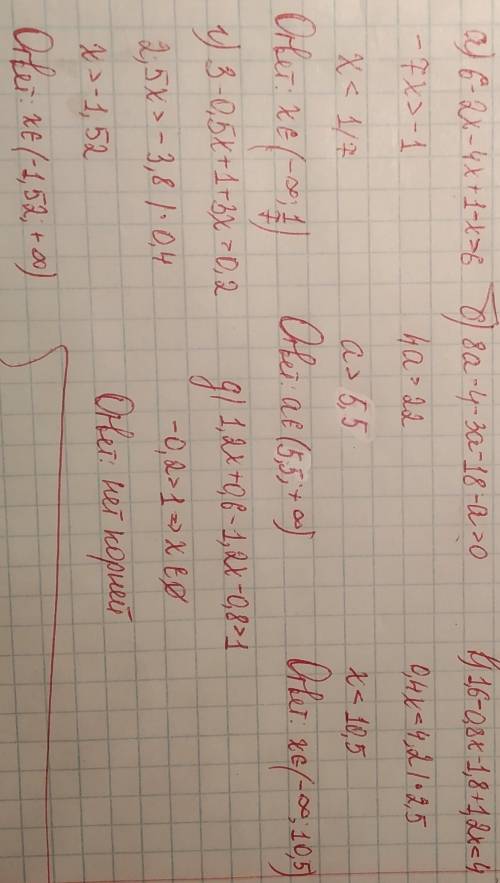 а) 6-2x-4x+1-x>6
-7x>-1
x < 1/7
Ответ: x∈(-∞; 1/7)
б) 8a-4-3a-18-a>0
4a>22
a> 5,5
Ответ: a∈(5,5; +∞)
в) 1,6-0,8x-1,8+1,2x<4
0,4x<4,2 | · 2,5
x < 10,5
Ответ: x∈(-∞; 10,5)
г) 3-0,5x+1+3x>0,2
2,5x>-3,8 | · 0,4
x>-1,52
Ответ: x∈(-1,52; +∞)
д) 1,2x+0,6-1,2x-0,8>1
-0,2>1 => x∈∅
Ответ: нет корней